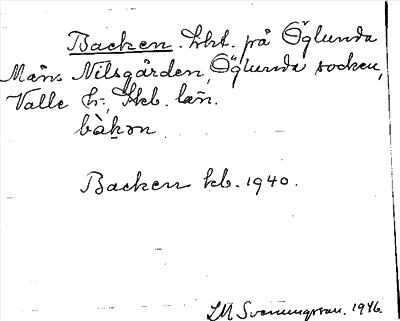 Backen. Lht. på Öglunda
Måns Nilsgården, Öglunda socken,
Valle h:, Skb. län.
bàkən
Backen kb. 1940.
LM Svenungsson. 1946.